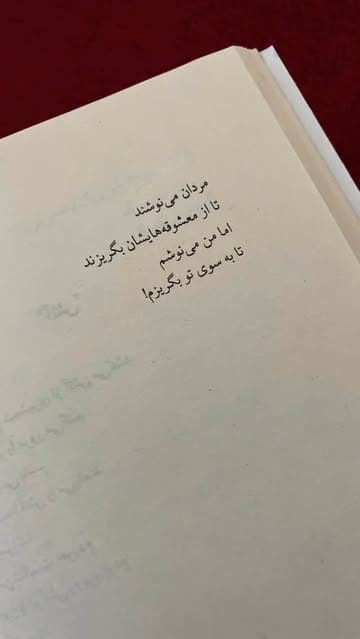 مردان می‌نوشند
تا از معشوقه‌هایشان بگریزند
اما من می‌نوشم
تا به سوی تو بگریزم!